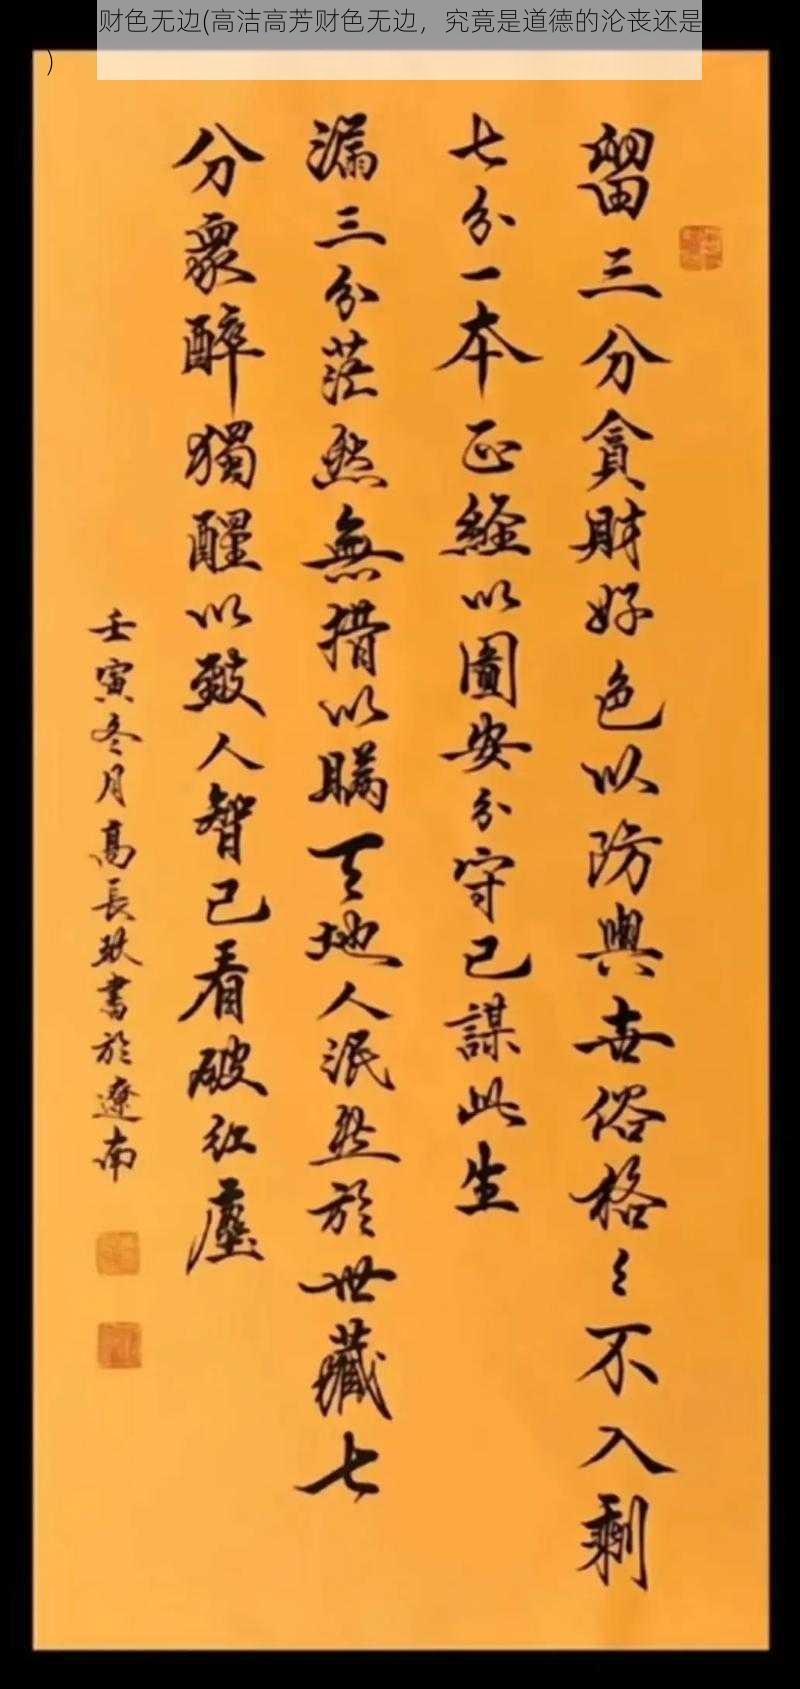 财色无边(高洁高芳财色无边，究竟是道德的沦丧还是
)
留三分貪財好色以防與世俗格〻不入剩
七分一本正經以圖安分守己謀此生
漏三分茫然無措以瞞天地人泯然於世藏七
分眾醉獨醒以致人智己看破紅塵
壬寅冬月高長玖書於遼南